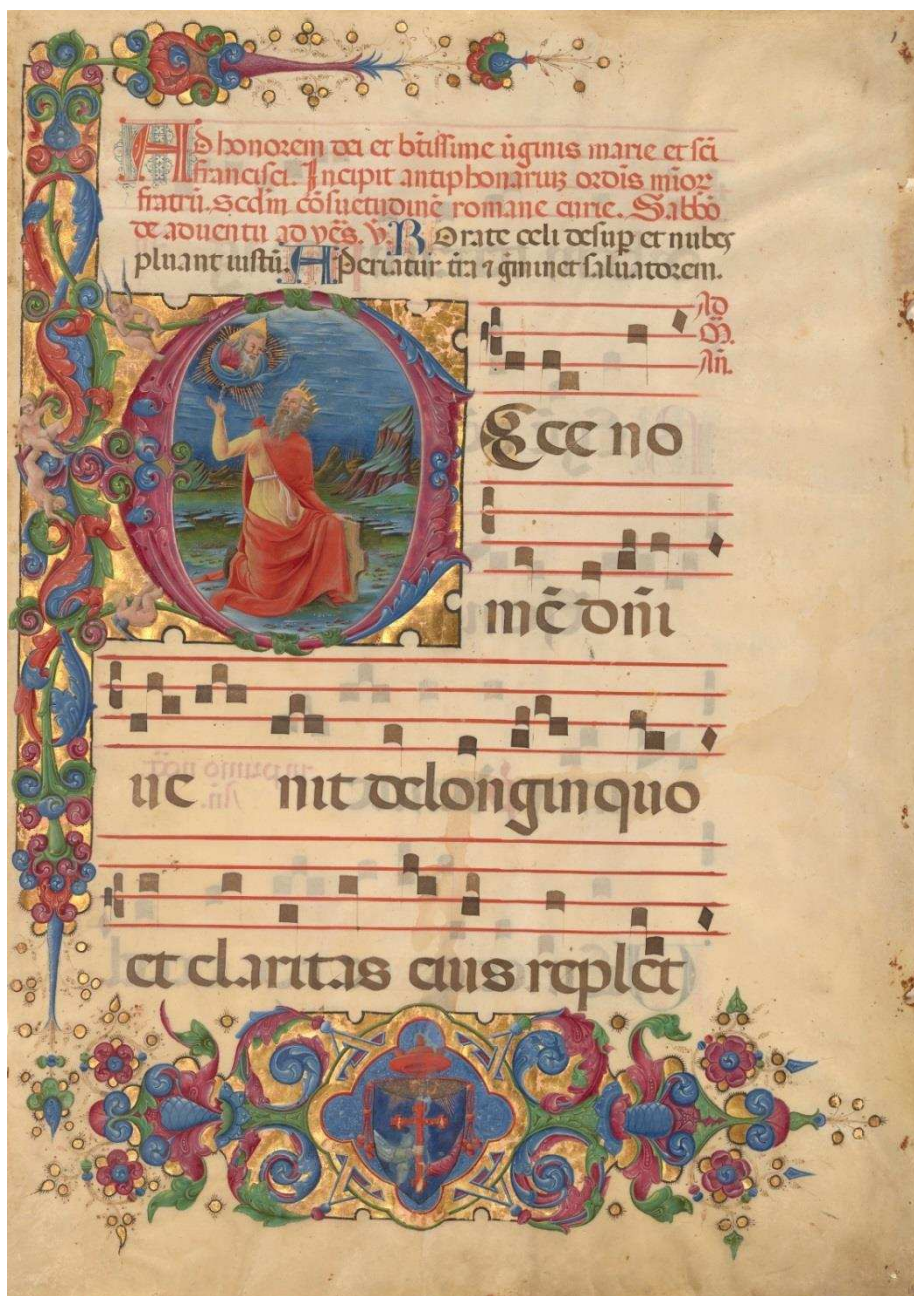 Ad honorem dei et btissime v̄ginis marie et sc̄i
francisci. Incipit antiphonaruz ordīs mīor
fratrū. scd̄m cōsuetudinē romane curie. Sabbō
de aduentu ad vēs. v̄. Rorate celi desup et nubes
pluant iustū. Aperiatur tr̄a ⁊ gmīnet saluatorem.
Ad
M̄.
An̄.
Ecce no
mē dn̄i
ue nit de longinquo
et claritas eius replet